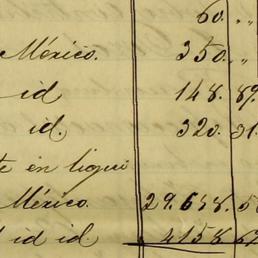 60. „
México. 350. „
id 148. 89
id. 320. 31
te en liqui
México. 29.638. 5
id id. 4158. 69